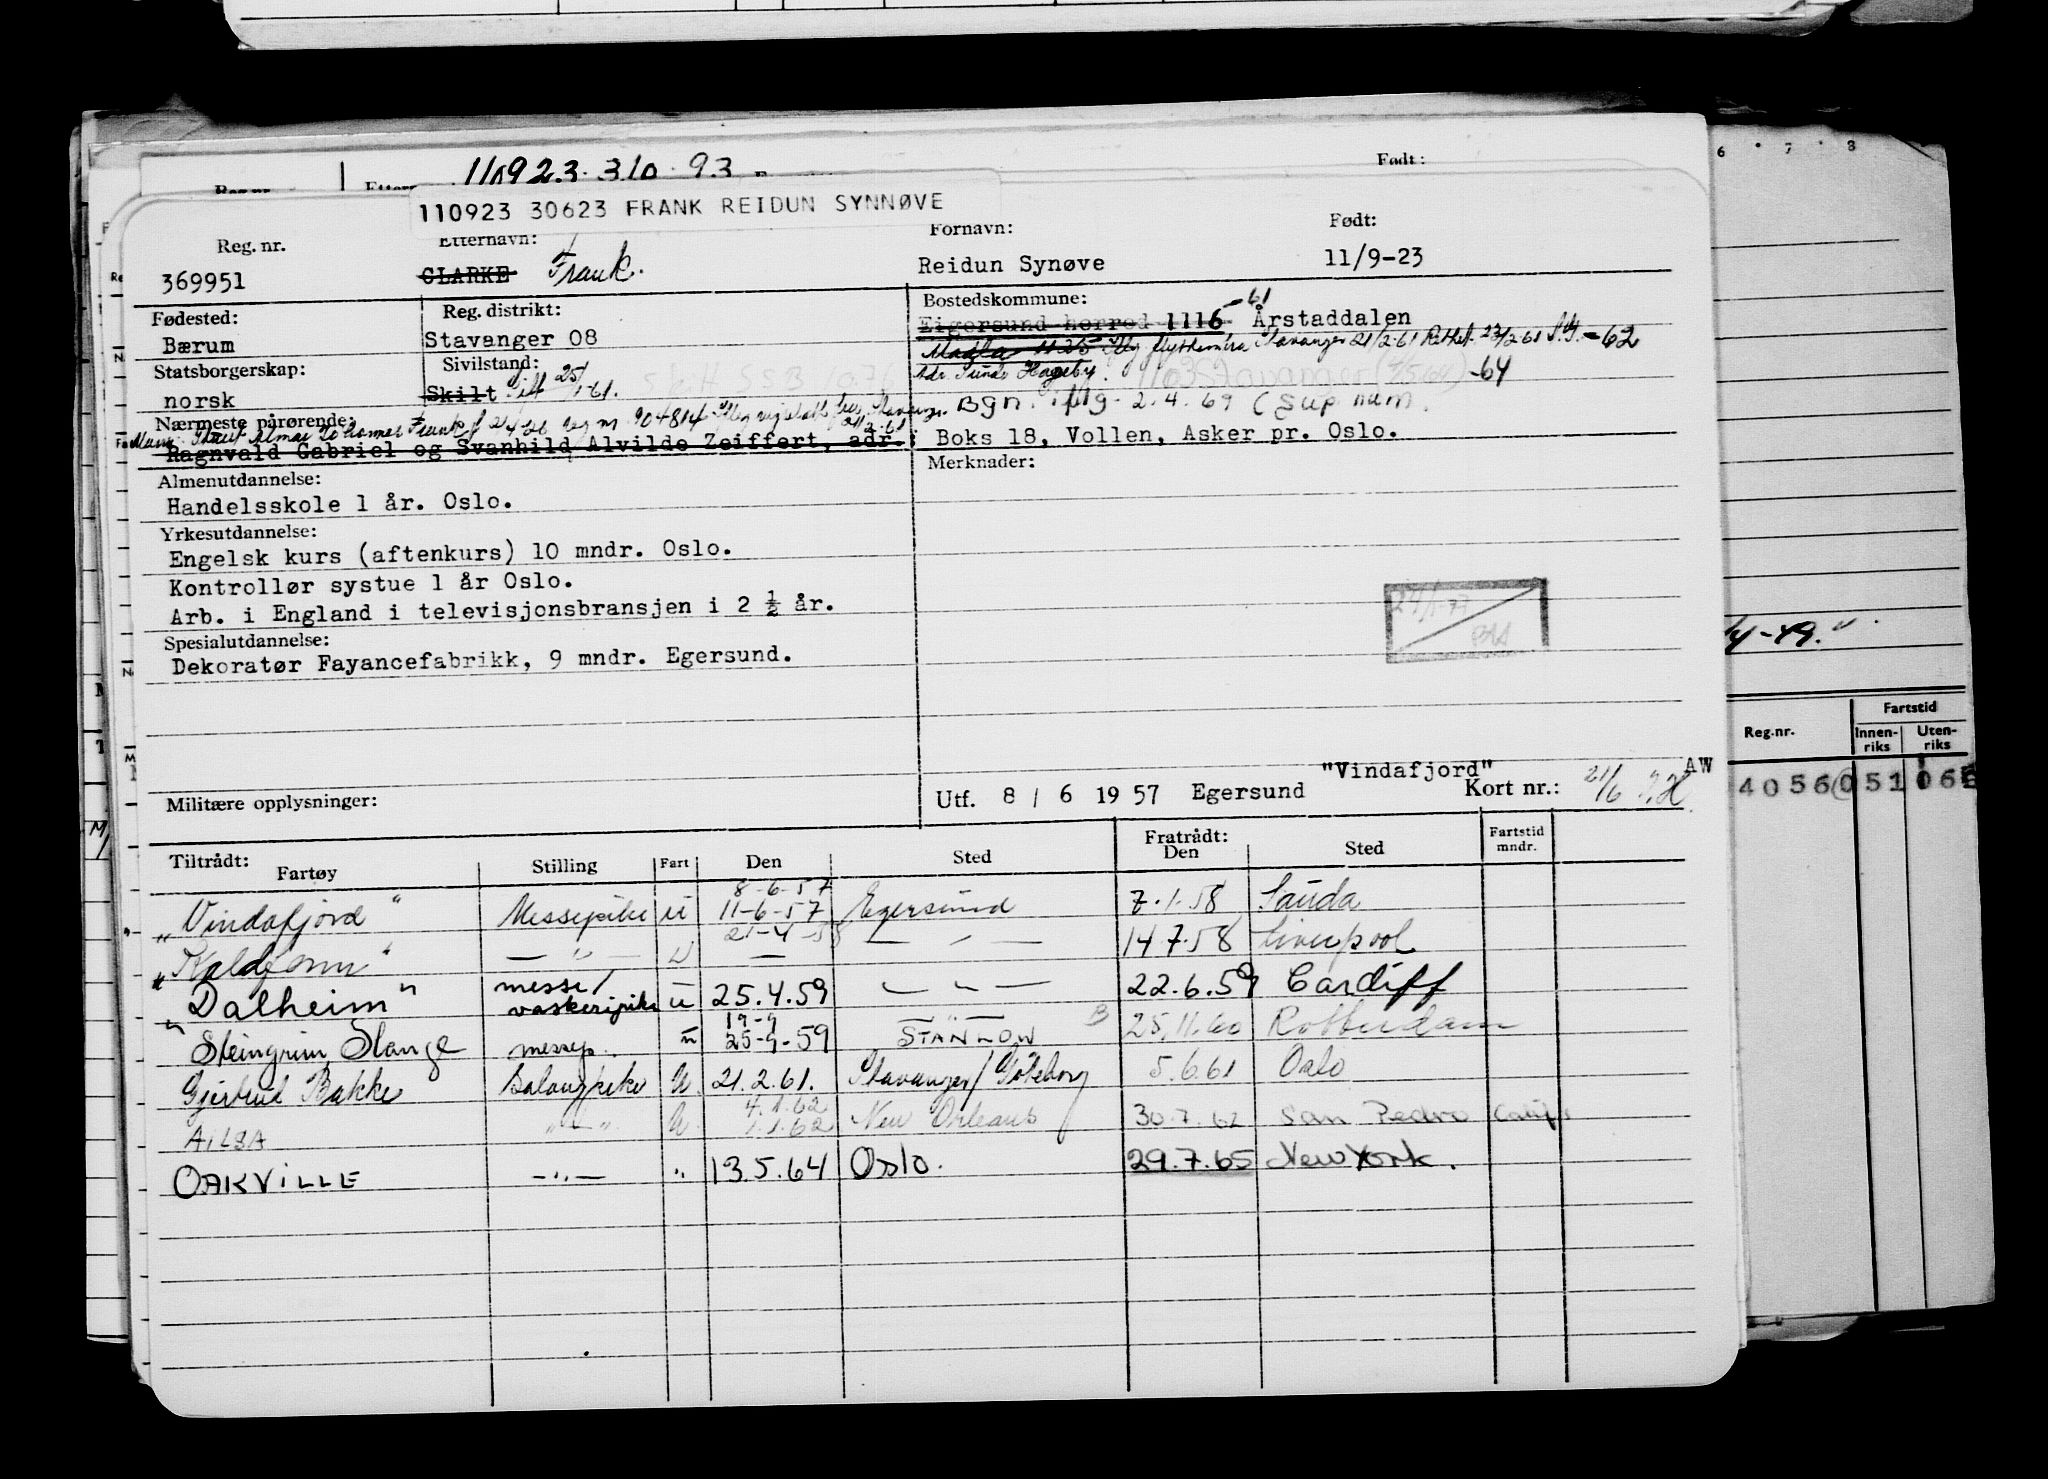 Født:
110923 310 93
110923 30623 FRANK REIDUN SYNNØVE
Reg. nr. Etternavn: Fornavn: Født:
369951 CLARKE Frank. Reidun Synøve 11/9-23
Fødested: Reg. distrikt: Bostedskommune: -61
Bærum Stavanger 08 Eigersund herred 1116 Årstaddalen
Statsborgerskap: Sivilstand: Madla Stavanger 21/2-61 23/2-61 -62
norsk Skilt Gift 25/1-61. Hageby. 1103 Stavanger -64
Nærmeste pårørende: Bgn. iflg. 2.4.69 (sup. num.
Ragnvald Gabriel og Svanhild Alvilde Zeiffert, adr. Boks 18, Vollen, Asker pr. Oslo.
Almenutdannelse: Merknader:
Handelsskole 1 år. Oslo.
Yrkesutdannelse:
Engelsk kurs (aftenkurs) 10 mndr. Oslo.
Kontrollør systue 1 år Oslo.
Arb. i England i televisjonsbransjen i 2 ½ år.
Spesialutdannelse:
Dekoratør Fayancefabrikk, 9 mndr. Egersund.
/4-49."
Reg.nr. Fartstid
Innen-riks Uten-riks
40560 51 06
"Vindafjord" AW
Militære opplysninger: Utf. 8 / 6 1957 Egersund Kort nr.: 21/6
Tiltrådt: Fratrådt: Fartstid mndr.
Fartøy Stilling Fart Den Sted Den Sted
8-6-57
"Vindafjord" Messepike u 11-6-57 Egersund 7.1.58 Sauda
21-4-58
"Kaldfonn" — " — u — — " — 14 7.58 Liverpool
"Dalheim" messe/vaskeripike u 25.4.59 — " — 22.6.59 Cardiff
19-9
Steingrim Slange messep. u 25-9-59 STANLOW 25.11.60 Rotterdam
Gjertrud Bakke Salongpike U 21.2.61. Stavanger/Göteborg 5.6.61 Oslo
4.1.62
AILSA — " — U 1.1.62 New Orleans 30.7.62 San Pedro Calif.
OAKVILLE — " — " 13.5.64 Oslo. 29.7.65 New York.